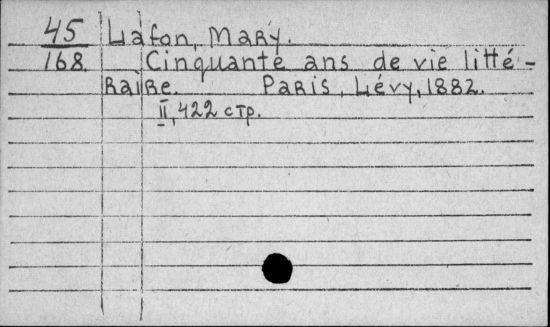 45 Lafon, Mary.
168. Cinquante ans de vie litté-
raire. Paris, Lévy, 1882.
II, 422 стр.